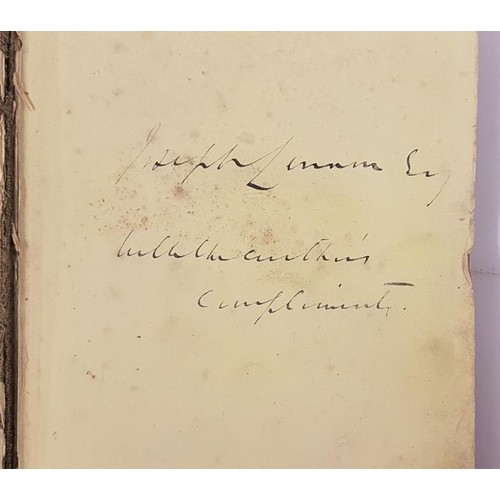 Joseph Lennon Esq
with the author's
compliments.